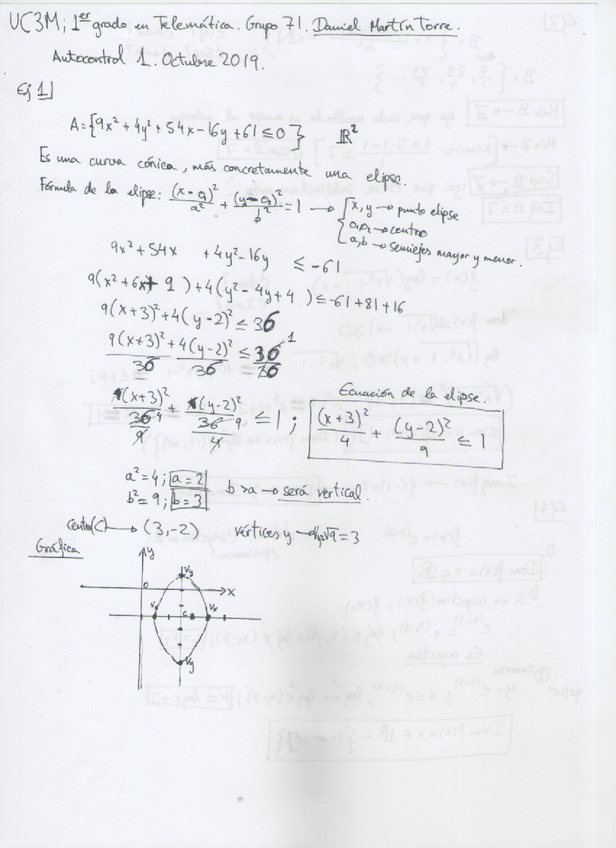 UC3M; 1er grado en Telemática. Grupo 71. Daniel Martín Torre.
Autocontrol 1. Octubre 2019.
Ej 1]
A={9x²+4y²+54x-16y+61≤0} ℝ²
Es una curva cónica, más concretamente una elipse.
Fórmula de la elipse: (x-o₁)²/a² + (y-o₂)²/b² = 1 → { x, y → punto elipse
o₁o₂ → centro
a, b → semiejes mayor y menor.
9x²+54x +4y²-16y ≤ -61
9(x²+6x+9)+4(y²-4y+4) ≤ -61+81+16
9(x+3)²+4(y-2)² ≤ 36
9(x+3)²/36 + 4(y-2)²/36 ≤ 36/36 1
Ecuación de la elipse.
(x+3)²/36 4 + (y-2)²/36 9 ≤ 1; (x+3)²/4 + (y-2)²/9 ≤ 1
9 4
a²=4; a=2
b²=9; b=3 b>a → será vertical.
Centro(C) → (3,-2) vértices y → √9=3
Gráfica
y
Vy
0 x
Vx C Vx
Vy